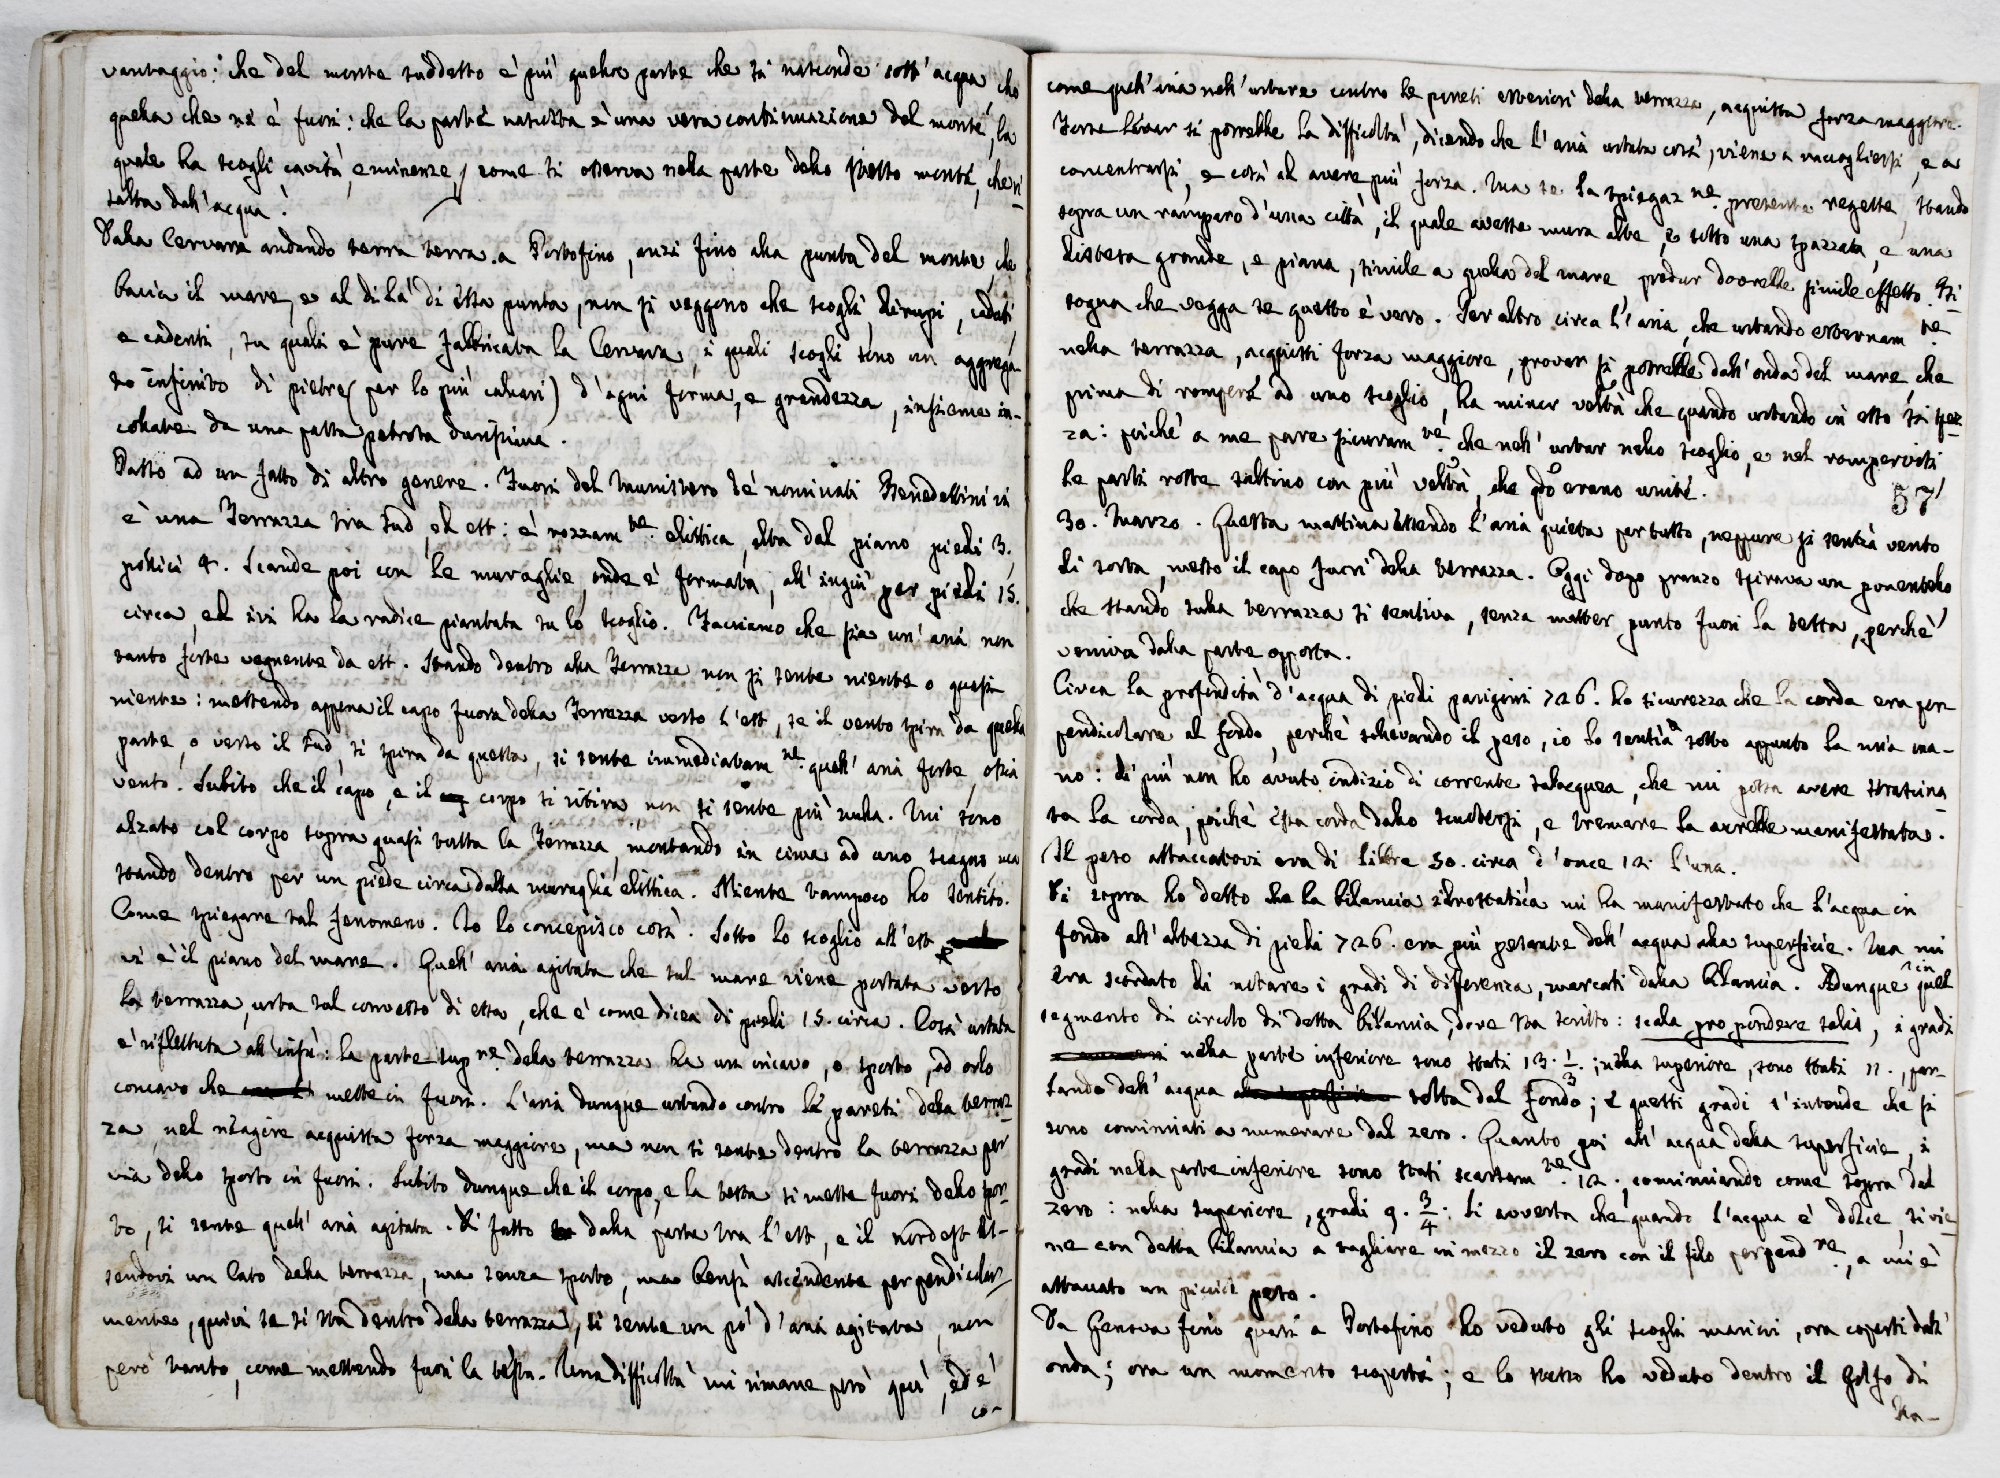 vantaggio: che del monte suddetto è più quella parte che si nasconde sott' acqua che
quella che ne è fuori: che la parte nascosta è una vera continuazione del monte, la
quale ha scogli cavità, eminenze, come si osserva nella parte dello stesso monte, che ri-
salta dall' acqua.
Dalla Cervara andando terra terra a Portofino, anzi fino alla punta del monte, che
bacia il mare, e al di là di essa punta, non si veggono che scogli, dirupi, caduti,
e cadenti, su quali è pure fabbricata la Cervara, i quali scogli sono un aggrega-
to infinito di pietre (per lo più calcari) d' ogni forma, e grandezza, insieme in-
collate da una pasta petrosa durissima.
Passo ad un fatto di altro genere. Fuori del Munistero de' nominati Benedettini vi
è una Terrazza tra sud, ed est: è rozzam.te elittica, alta dal piano piedi 3.
pollici 4. Scende poi con le muraglie, onde è formata, all' ingiù per piedi 15.
circa, ed ivi ha la radice piantata su lo scoglio. Facciamo che sia un' aria non
tanto forte vegnente da est. Stando dentro alla Terrazza non si sente niente o quasi
niente: mettendo appena il capo fuora della Terrazza verso l' est, se il vento spira da quella
parte, o verso il sud, si spira da questa, si sente immediatam.te quell' aria forte, ossia
vento. Subito che il capo, e il corpo si ritira non si sente più nulla. Mi sono
alzato col corpo sopra quasi tutta la Terrazza, montando in cima ad uno scagno, ma
stando dentro per un piede circa dalla muraglia elittica. Niente tampoco ho sentito.
Come spiegare tal fenomeno. Io lo concepisco così. Sotto lo scoglio all' est
vi è il piano del mare. Quell' aria agitata che sul mare viene portata verso
la terrazza, urta sul convesso di essa, che è come dicea di piedi 15. circa. Così urtata
è riflettuta all' insù: la parte sup.re della terrazza ha un incavo, o sporto, ad orlo
concavo che mette in fuori. L' aria dunque urtando contro le pareti della terraz-
za, nel reagire acquista forza maggiore, ma non si sente dentro la terrazza per
via dello sporto in fuori. Subito dunque che il corpo, e la testa si mette fuori dello spor-
to, si sente quell' aria agitata. Di fatto dalla parte tra l' est, e il nordest es-
sendovi un lato della terrazza, ma senza sporto, ma bensì ascendente perpendicolar-
mente, quivi se si sta dentro della terrazza, si sente un po' d' aria agitata, non
però tanto, come mettendo fuori la testa. Una difficoltà mi rimane però qui, ed è
co-
come quell' aria nell' urtare contro le pareti esteriori della terrazza, acquista forza maggiore.
Forse levar si potrebbe la difficoltà, dicendo che l' aria urtata così, viene a raccogliersi, e a
concentrarsi, e così ad avere più forza. Ma se la spiegaz.ne presente reggesse, stando
sopra un ramparo d' una città, il quale avesse mura alte, e sotto una spazzata, e una
distesa grande, e piana, simile a quella del mare produr dovrebbe simile effetto. Bi-
sogna che vegga se questo è vero. Per altro circa l' aria, che urtando esternam.te
nella terrazza, acquisti forza maggiore, provar si potrebbe dall' onda del mare, che
prima di rompersi ad uno scoglio, ha minor veltà che quando urtando in esso si spez-
za: poichè a me pare sicuram.te che nell' urtar nello scoglio, e nel rompervisi
le parti rotte saltino con più veltà, che qdo erano unite.
57
30. Marzo. Questa mattina essendo l' aria quieta per tutto, neppure si sentia vento
di sorta, messo il capo fuori della terrazza. Oggi dopo pranzo spirava un ponentello
che stando sulla terrazza si sentiva, senza metter punto fuori la testa, perchè
veniva dalla parte opposta.
Circa la profondità d' acqua di piedi parigini 726. ho sicurezza che la corda era per-
pendicolare al fondo, perchè sollevando il peso, io lo sentia sotto appunto la mia ma-
no: di più non ho avuto indizio di corrente subacquea, che mi possa avere strascina-
ta la corda, poichè essa corda dallo scuotersi, e tremare la avrebbe manifestata.
Il peso attaccatovi era di libbre 30. circa d' once 12. l' una.
Di sopra ho detto che la bilancia idrostatica mi ha manifestato che l' acqua in
fondo all' altezza di piedi 726. era più pesante dell' acqua alla superficie. Ma mi
era scordato di notare i gradi di differenza, marcati dalla bilancia. Adunque in quel
segmento di circolo di detta bilancia, dove sta scritto: scala pro pondere salis, i gradi
nella parte inferiore sono stati 13. 1/3.; nella superiore, sono stati 11., par-
lando dell' acqua tolta dal fondo; e questi gradi s' intende che si
sono cominciati a numerare dal zero. Quanto poi all' acqua della superficie, i
gradi nella parte inferiore sono stati scarsam.te 12., cominciando come sopra dal
zero: nella superiore, gradi 9. 3/4. Si avverta che quando l' acqua è dolce, si vie-
ne con detta bilancia a tagliare in mezzo il zero con il filo perpend.re, a cui è
attaccato un picciol peso.
Da Genova fino quasi a Portofino ho veduto gli scogli marini, ora coperti dall'
onda; ora un momento scoperti; e lo stesso ho veduto dentro il Golfo di